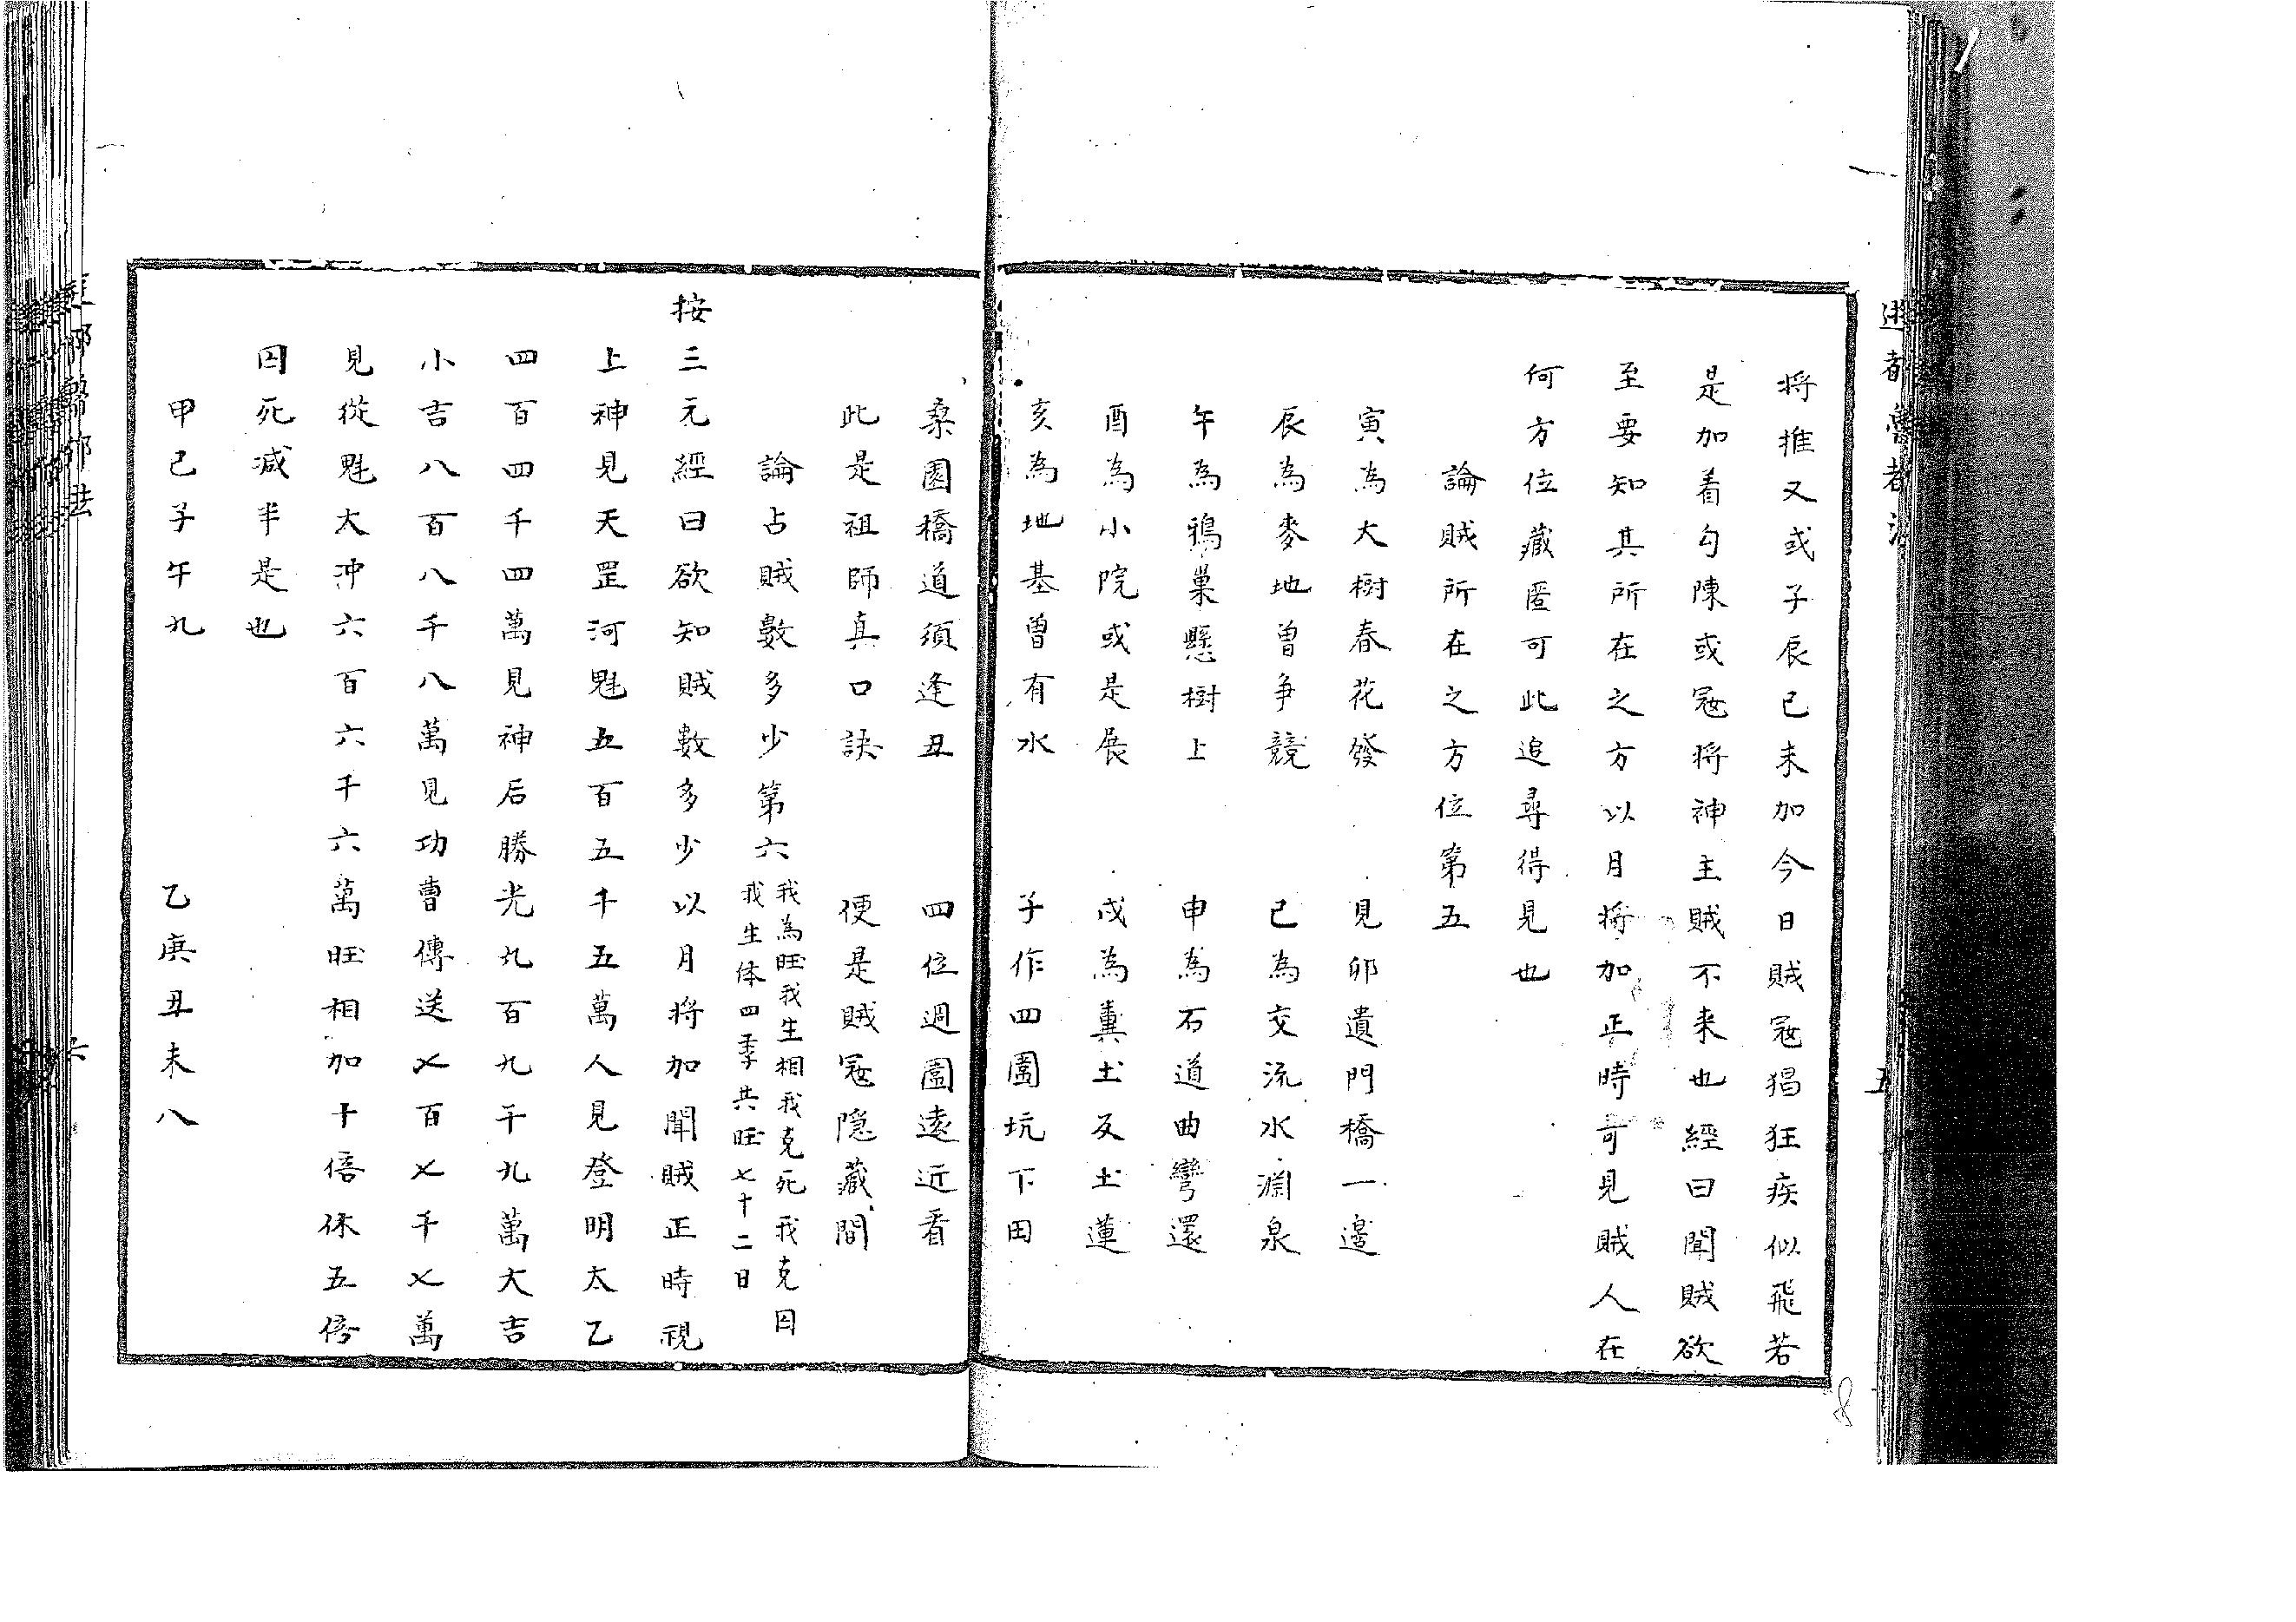 遊都魯都法
五
將推又或子辰巳未加今日賊寇猖狂疾似飛若
是加着勾陳或寇將神主賊不来也經曰聞賊欲
至要知其所在之方以月將加正時可見賊人在
何方位藏匿可此追尋得見也
論賊所在之方位第五
寅為大樹春花發 見卯遺門橋一邊
辰為麥地曾争競 巳為交流水淵泉
午為鴉巢懸樹上 申為石道曲彎還
酉為小院或是展 戌為糞土及土蓮
亥為地基曾有水 子作四圍坑下田
桑園橋道須逢丑 四位週圍遠近看
此是祖師真口訣 便是賊寇隐藏間
論占賊數多少第六 我為旺我生相我克死我克囚
我生休四季共旺七十二日
按三元經曰欲知賊數多少以月將加聞賊正時視
上神見天罡河魁五百五千五萬人見登明太乙
四百四千四萬見神后勝光九百九千九萬大吉
小吉八百八千八萬見功曹傳送七百七千七萬
見從魁太冲六百六千六萬旺相加十倍休五倍
囚死减半是也
甲己子午九 乙庚丑未八
六